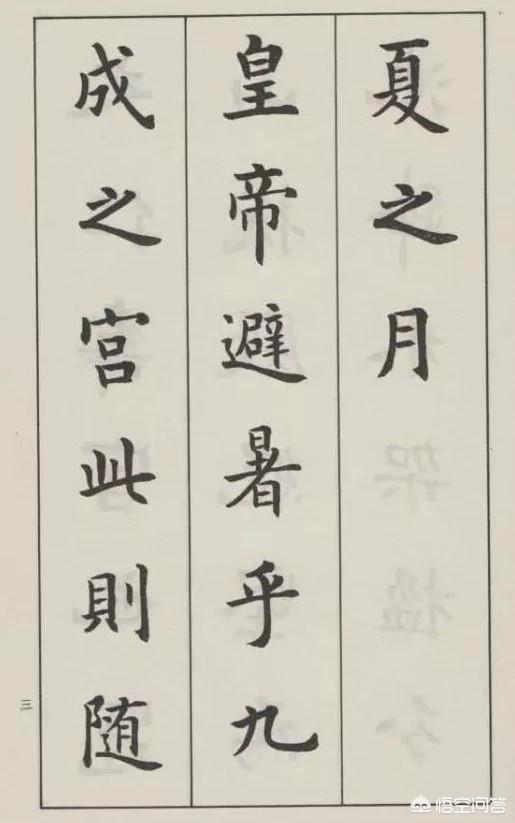 夏之月
皇帝避暑乎九
成之宮此則随
三
悟空问答